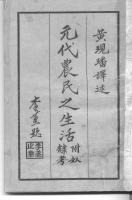 黃現璠譯述
元代農民之生活
附奴隸考
李蒸題